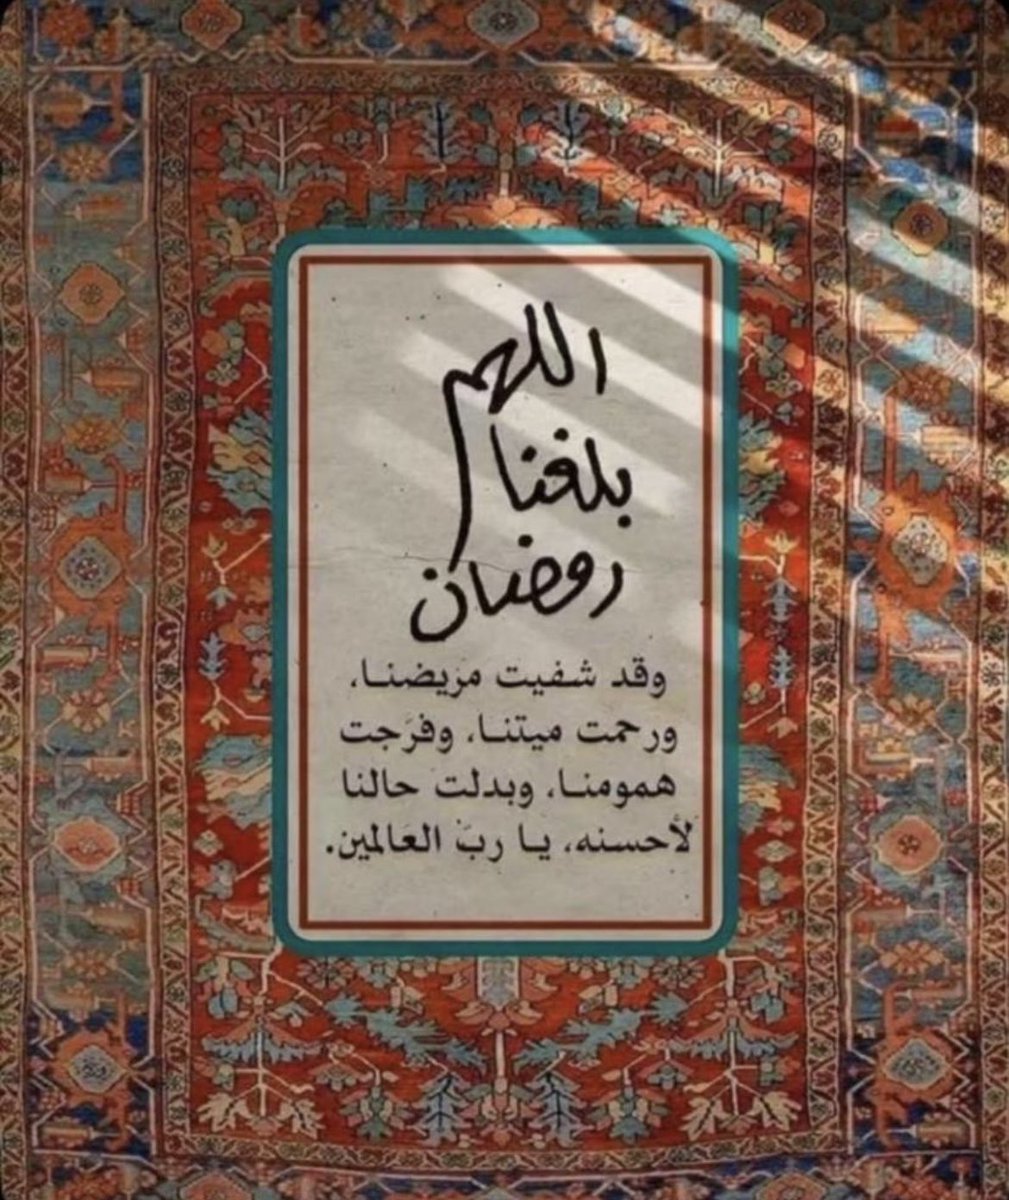 اللهم
بلغنا
رمضان
وقد شفيت مريضنا،
ورحمت ميتنا، وفرَجت
همومنا، وبدلت حالنا
لأحسنه، يا ربّ العَالمين.